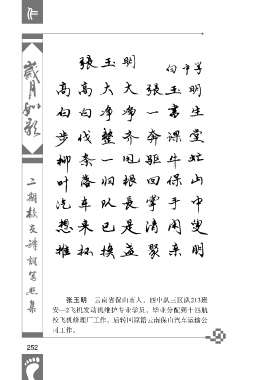 岁月如歌
二期校友诗词写照集
张玉明
高高大大张玉明
白白净净一书生
步伐整齐奔课堂
柳絮一甩驱牛忙
叶落归根回保山
汽车队长掌手中
想来已是清闲叟
推杯换盏聚亲朋
张玉明 云南省保山市人，四中队三区队213班
安—2飞机发动机维护专业学员，毕业分配到十四航
校飞机修理厂工作。后转回原籍云南保山汽车运输公
司工作。
252